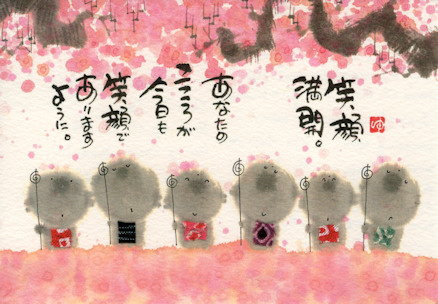 笑顔、
満開。
あなたの
こころが
今日も
笑顔で
あります
ように。